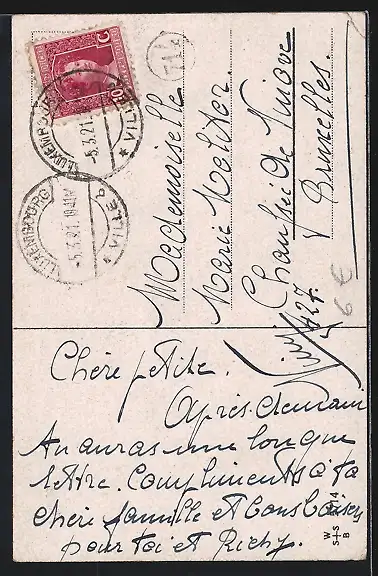 LUXEMBOURG
-5.3.21
VILLE
LUXEMBOURG
-5.3.21
VILLE b
Mademoiselle
Marie
Chaussée de Ninove
427
Bruxelles.
6 €
Chère petite.
Après-demain
tu auras une longue
lettre. Compliments à ta
chère famille et bons baisers
pour toi et Richy.
W S+S B